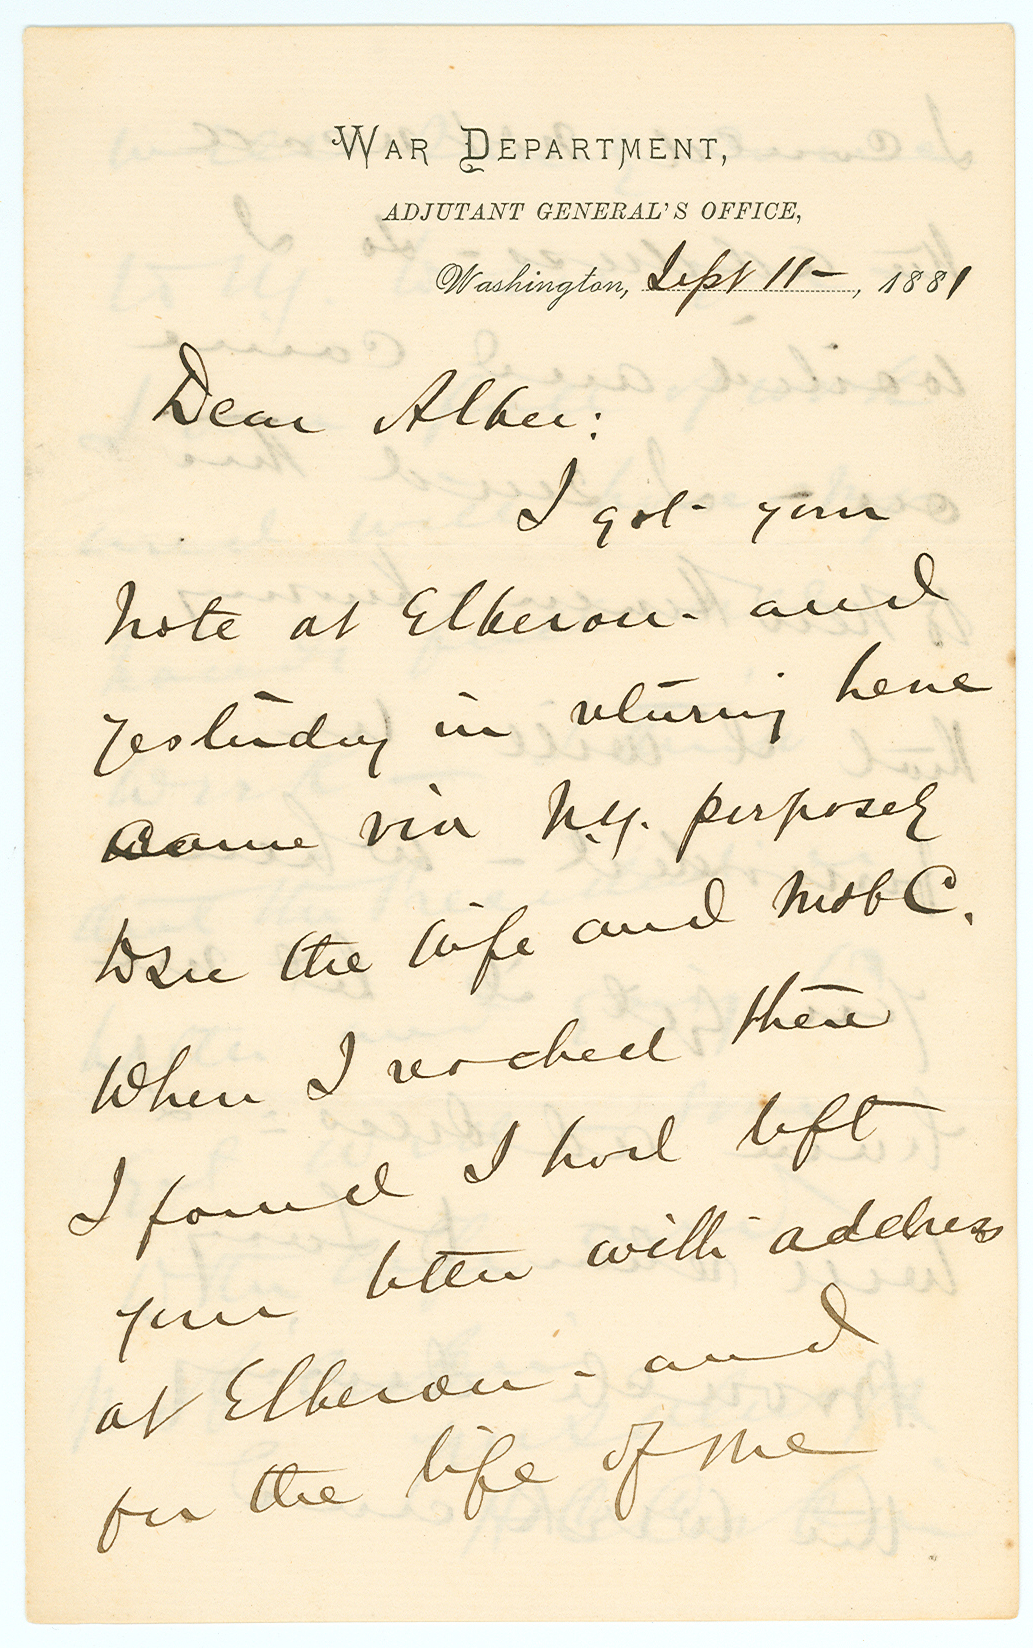 War Department,
Adjutant General's Office,
Washington, Sept 11-, 1881
Dear Alber:
I got your
note at Elberon- and
yesterday in returing here
came via N.Y. perposely
to see the wife and
When I reached there
I found I had left
your letter with address
at Elberon- and
for the life of me